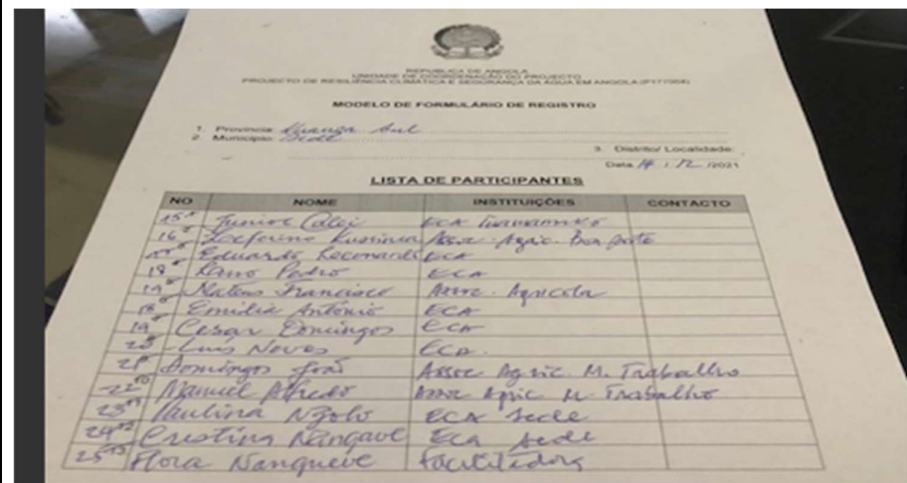 REPUBLICA DE ANGOLA
UNIDADE DE COORDENAÇÃO DO PROJECTO
PROJECTO DE RESILIÊNCIA CLIMATICA E SEGURANÇA DA ÁGUA EM ANGOLA
MODELO DE FORMULÁRIO DE REGISTRO
1. Província: Kuanza Sul
2. Município: Sede
3. Distrito/ Localidade:
Data 14 / 12 /2021
LISTA DE PARTICIPANTES
NO NOME INSTITUIÇÕES CONTACTO
15º Junior ECA
16º Assoc. Agric. Boa
Eduardo ECA
18º Pedro ECA
19º Mateus Francisco Assoc. Agricola
18º Emidia António ECA
19º Cesar Domingos ECA
20º Luis Neves ECA.
21º Domingos João Assoc Agric. M. Trabalho
22º Manuel Alfredo Assoc Agric M. Trabalho
23º Paulina Nzolo ECA Sede
24º Cristina Nangave ECA Sede
25º Flora Nangueve Facilitadora